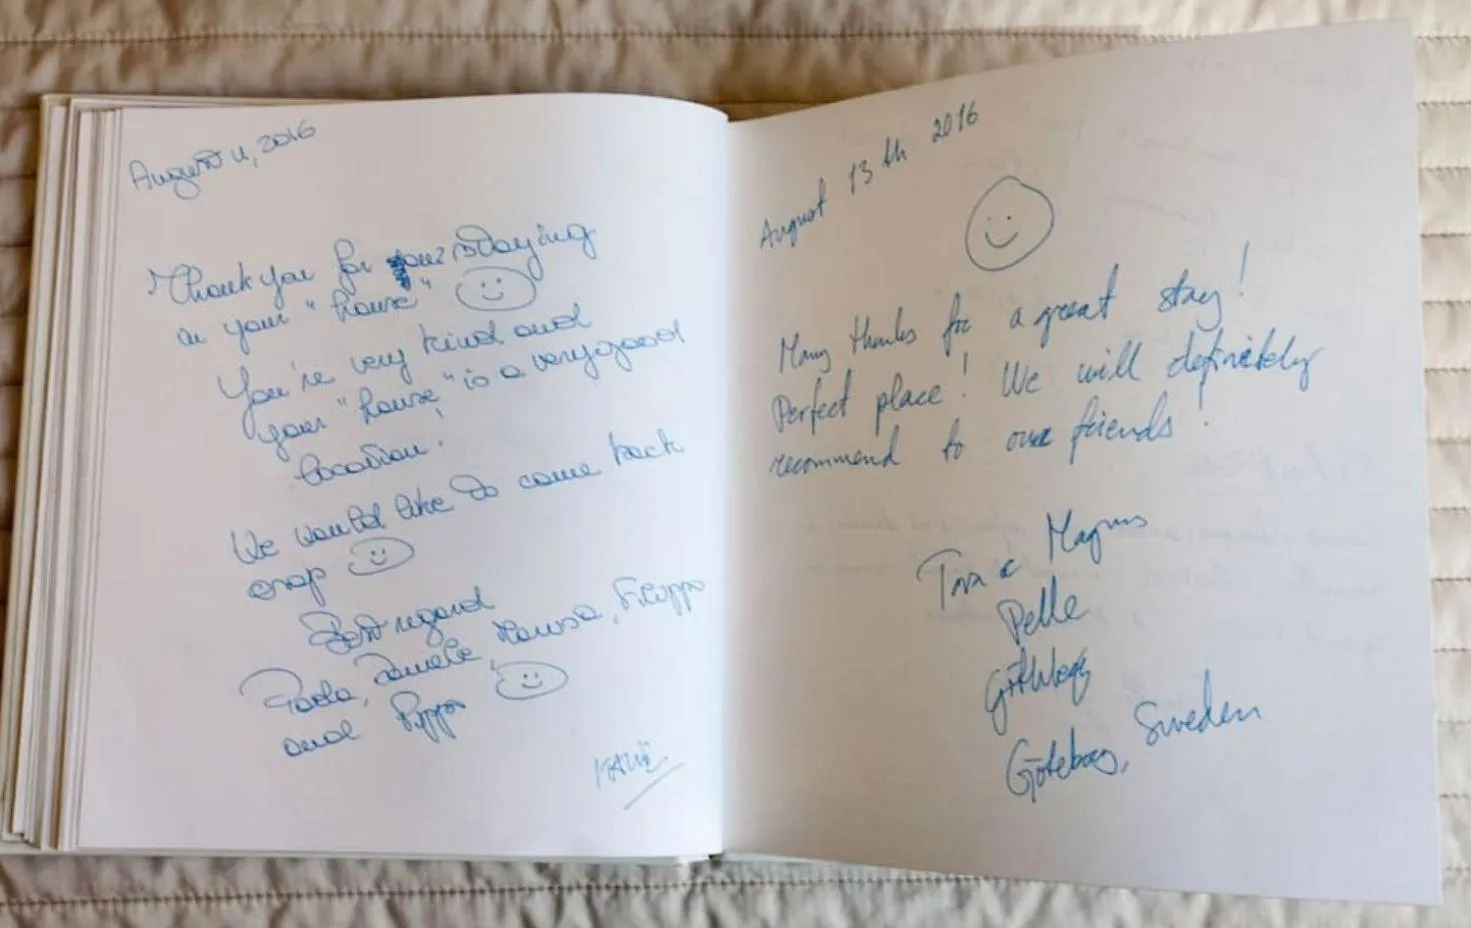 August 11, 2016
Thank you for your staying
in your "house"
You're very kind and
your "house" is a very good
location!
We would like to come back
asap
Best regard
Paola, Daniele, Marisa, Filippo
and Pippo
August 13th 2016
Many thanks for a great stay!
Perfect place! We will definitely
recommend to our friends!
Magnus
Pelle
Göteborg, Sweden